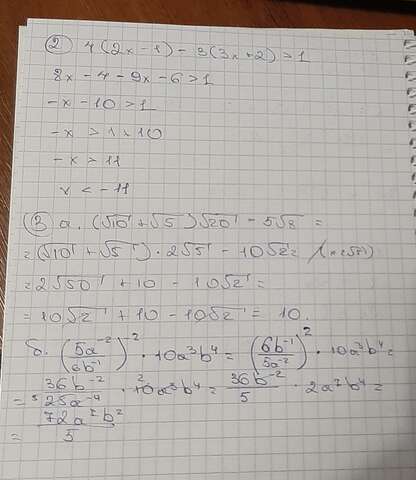 ② 4(2x-1)-3(3x+2)>1
8x-4-9x-6>1
-x-10>1
-x>1+10
-x>11
x<-11
③ а. (√10+√5)√20-5√8=
=(√10+√5)·2√5-10√2=
=2√50+10-10√2=
=10√2+10-10√2=10.
б. (5a⁻²/6b⁻¹)⁻²·10a³b⁴=(6b⁻¹/5a⁻²)²·10a³b⁴=
=36b⁻²/25a⁻⁴·10a³b⁴=36b⁻²/5·2a⁷b⁴=
=72a⁷b²/5